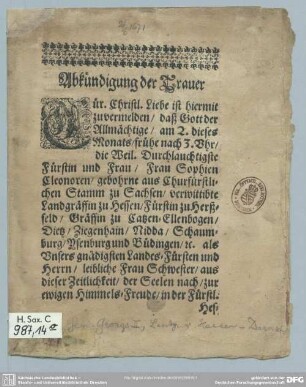 Abkündigung der Trauer
Eür. Christl. Liebe ist hiermit
zuvermelden / daß Gott der
Allmächtige / am 2. dieses
Monats / frühe nach 3. Vhr /
die Weil. Durchlauchtigste
Fürstin und Frau / Frau Sophien
Eleonoren / gebohrne aus Churfürstli-
chen Stamm zu Sachsen / verwittibte
Landgräffin zu Hessen / Fürstin zu Herß-
feld / Gräffin zu Catzen-Ellenbogen /
Dietz / Ziegenhain / Nidda / Schaum-
burg / Ysenburg und Büdingen / ꝛc. als
Unsers gnädigsten Landes-Fürsten und
Herrn / leibliche Frau Schwester / aus
dieser Zeitlichkeit / der Seelen nach / zur
ewigen Himmels-Freude / in der Fürstl.
Hes-
H. Sax. C
987,14